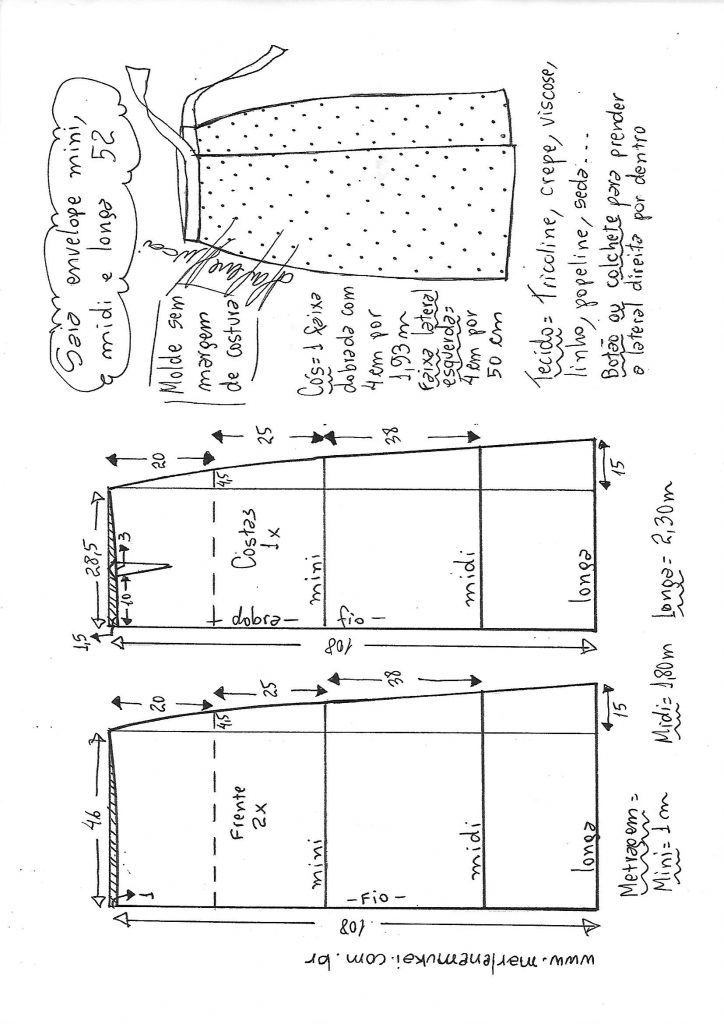 Saia envelope mini,
midi e longa 52
Molde sem
margem
de costura
Marlene Mukai
Cós=1 faixa
dobrada com
4cm por
1,93m
Faixa lateral
esquerda=
4cm por
50cm
Tecido= Tricoline, crepe, viscose,
linho, popeline, seda...
Botão ou colchete para prender
a lateral direita por dentro
28,5
1,5
10
3
20
4,5
25
38
15
108
Costas
1x
dobra
Fio
mini
midi
longa
46
1
20
4,5
25
38
15
108
Frente
2x
Fio
mini
midi
longa
Metragem=
Mini=1m Midi=1,80m Longa=2,30m
www.marlenemukai.com.br